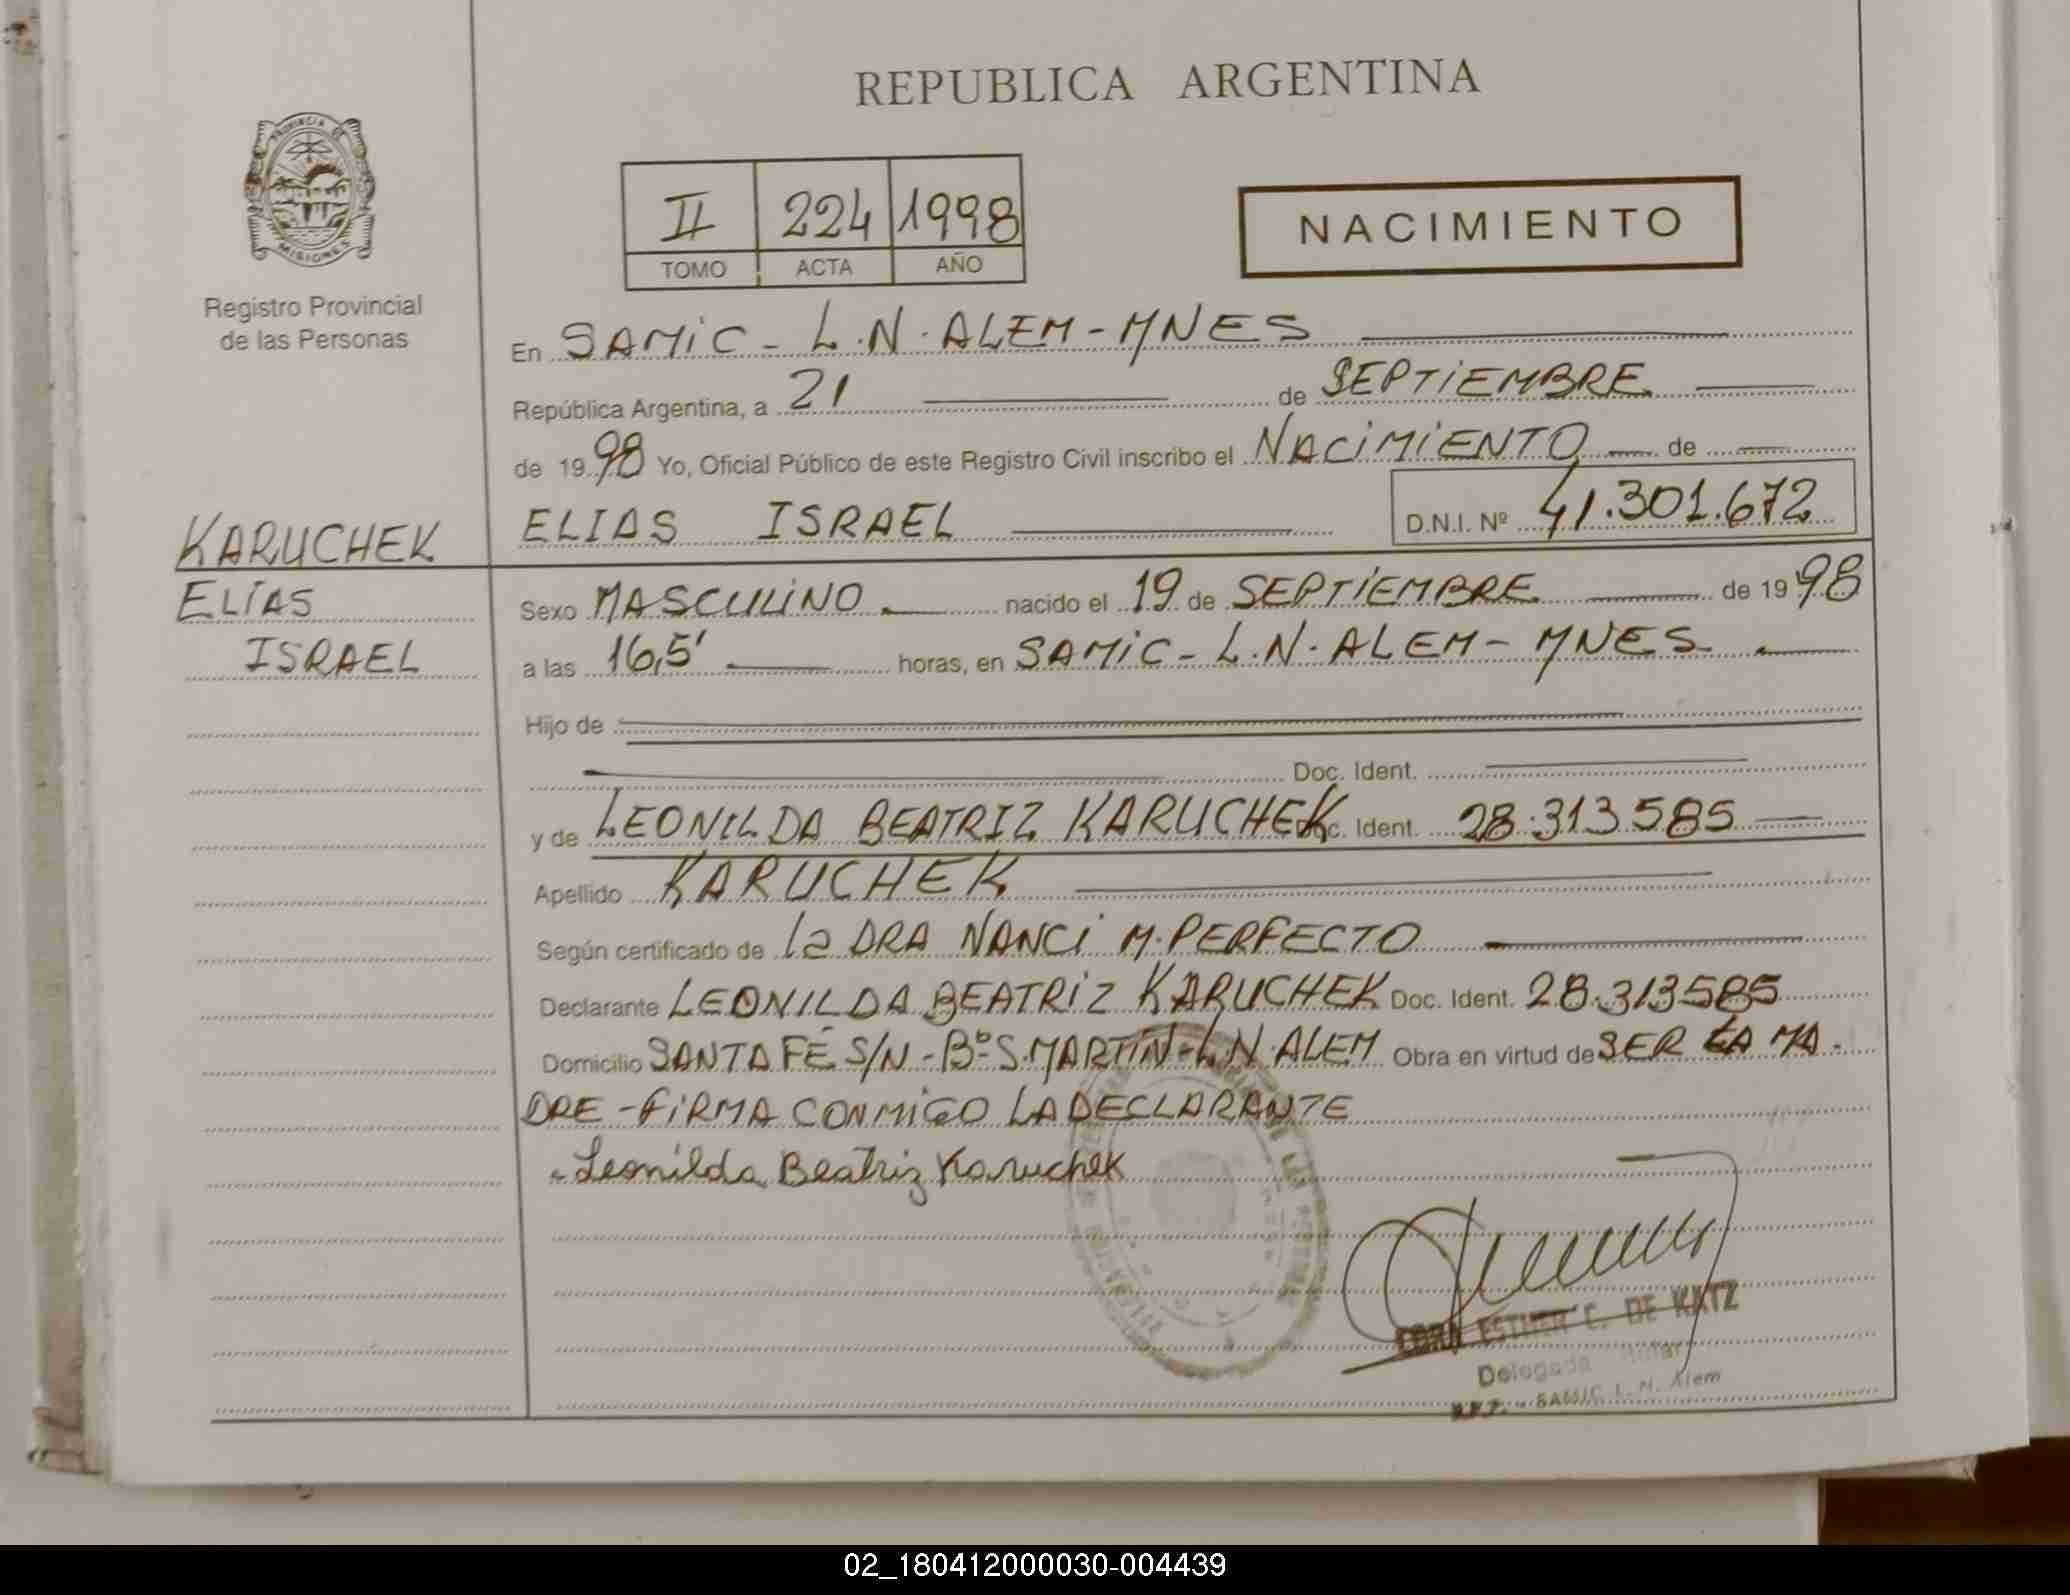 REPUBLICA ARGENTINA
PROVINCIA DE
MISIONES
Registro Provincial
de las Personas
II 224 1998
TOMO ACTA AÑO
NACIMIENTO
En SAMIC - L.N. ALEM - MNES
República Argentina, a 21 de SEPTIEMBRE
de 1998 Yo, Oficial Público de este Registro Civil inscribo el NACIMIENTO de
ELIAS ISRAEL D.N.I. Nº 41.301.672
KARUCHEK
ELIAS
ISRAEL
Sexo MASCULINO nacido el 19 de SEPTIEMBRE de 1998
a las 16,5' horas, en SAMIC - L.N. ALEM - MNES
Hijo de
Doc. Ident.
y de LEONILDA BEATRIZ KARUCHEK Doc. Ident. 28.313.585
Apellido KARUCHEK
Según certificado de la DRA NANCI M. PERFECTO
Declarante LEONILDA BEATRIZ KARUCHEK Doc. Ident. 28.313585
Domicilio SANTA FÉ S/N - Bº S. MARTIN - L.N. ALEM Obra en virtud de SER LA MA.
DRE - FIRMA CONMIGO LA DECLARANTE
Leonilda Beatriz Karuchek
ESTHER C. DE KATZ
Delegada
SAMIC L. N. Alem
02_180412000030-004439